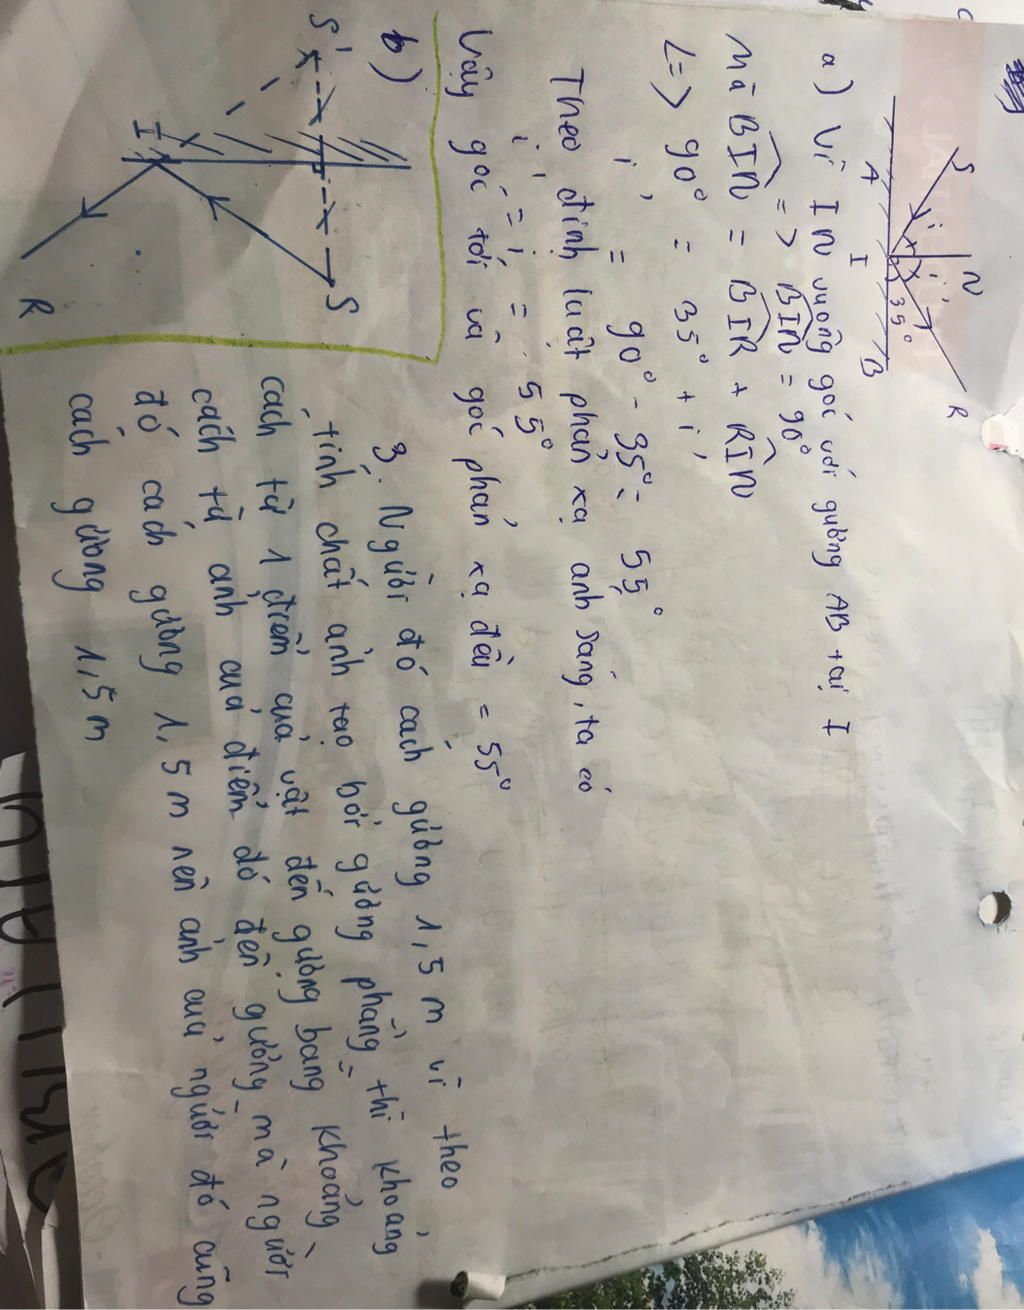 S
N
R
i
i'
35°
A
I
B
a) Vì IN vuông góc với gương AB tại I
=> BIN = 90°
mà BIN = BIR + RIN
<=> 90° = 35° + i'
i' = 90° - 35° = 55°
Theo định luật phản xạ anh sáng, ta có
i' = i = 55°
Vậy góc tới và góc phản xạ đều = 55°
b)
S'
S
I
R
3. Người đó cách gương 1,5 m vì theo
tính chất ảnh tạo bởi gương phẳng thì khoảng
cách từ 1 điểm của vật đến gương bang khoảng
cách từ ảnh của điểm đó đến gương mà người
đó cách gương 1,5 m nên ảnh của người đó cũng
cách gương 1,5 m